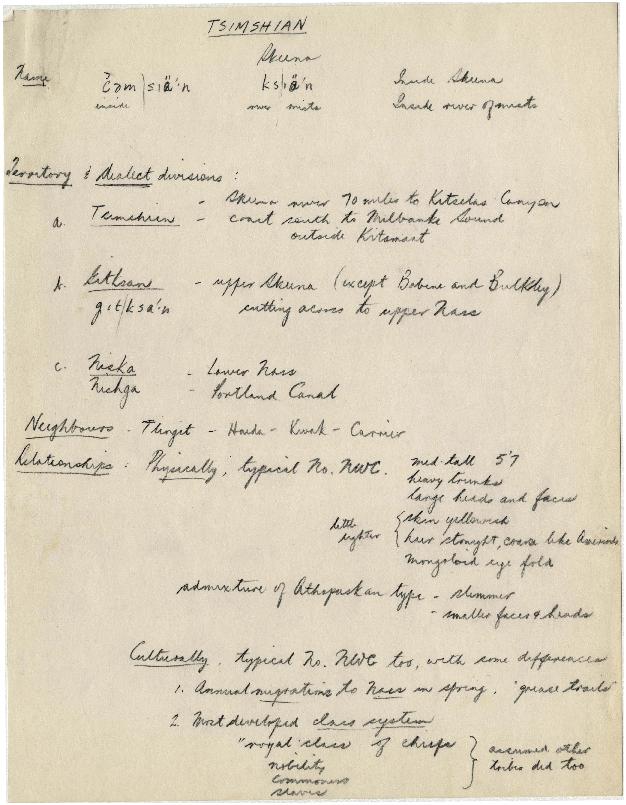 TSIMSHIAN
Skeena
Name c̓əm|siä'n ks|iä'n Inside Skeena
inside river mists Inside river of mists
Territory & dialect divisions :
a. Tsimshian - Skeena river 70 miles to Kitselas Canyon
- coast south to Milbanke Sound
outside Kitamaat
b. Gitksan - upper Skeena (except Babine and Bulkley)
git/ksa'n cutting across to upper Nass
c. Niska - Lower Nass
Nishga - Portland Canal
Neighbours - Tlingit - Haida - Kwak - Carrier
Relationships : Physically, typical No. NWC. med-tall 5'7
heavy trunks
large heads and faces
little lighter { skin yellowish
hair straight, coarse like
mongoloid eye fold
admixture of Athapaskan type - slimmer
- smaller faces & heads
Culturally, typical No. NWC too, with some differences
1. Annual migrations to Nass in spring. "grease trails"
2. Most developed class system
"royal" class of chiefs } assumed other
nobility tribes did too
commoners
slaves